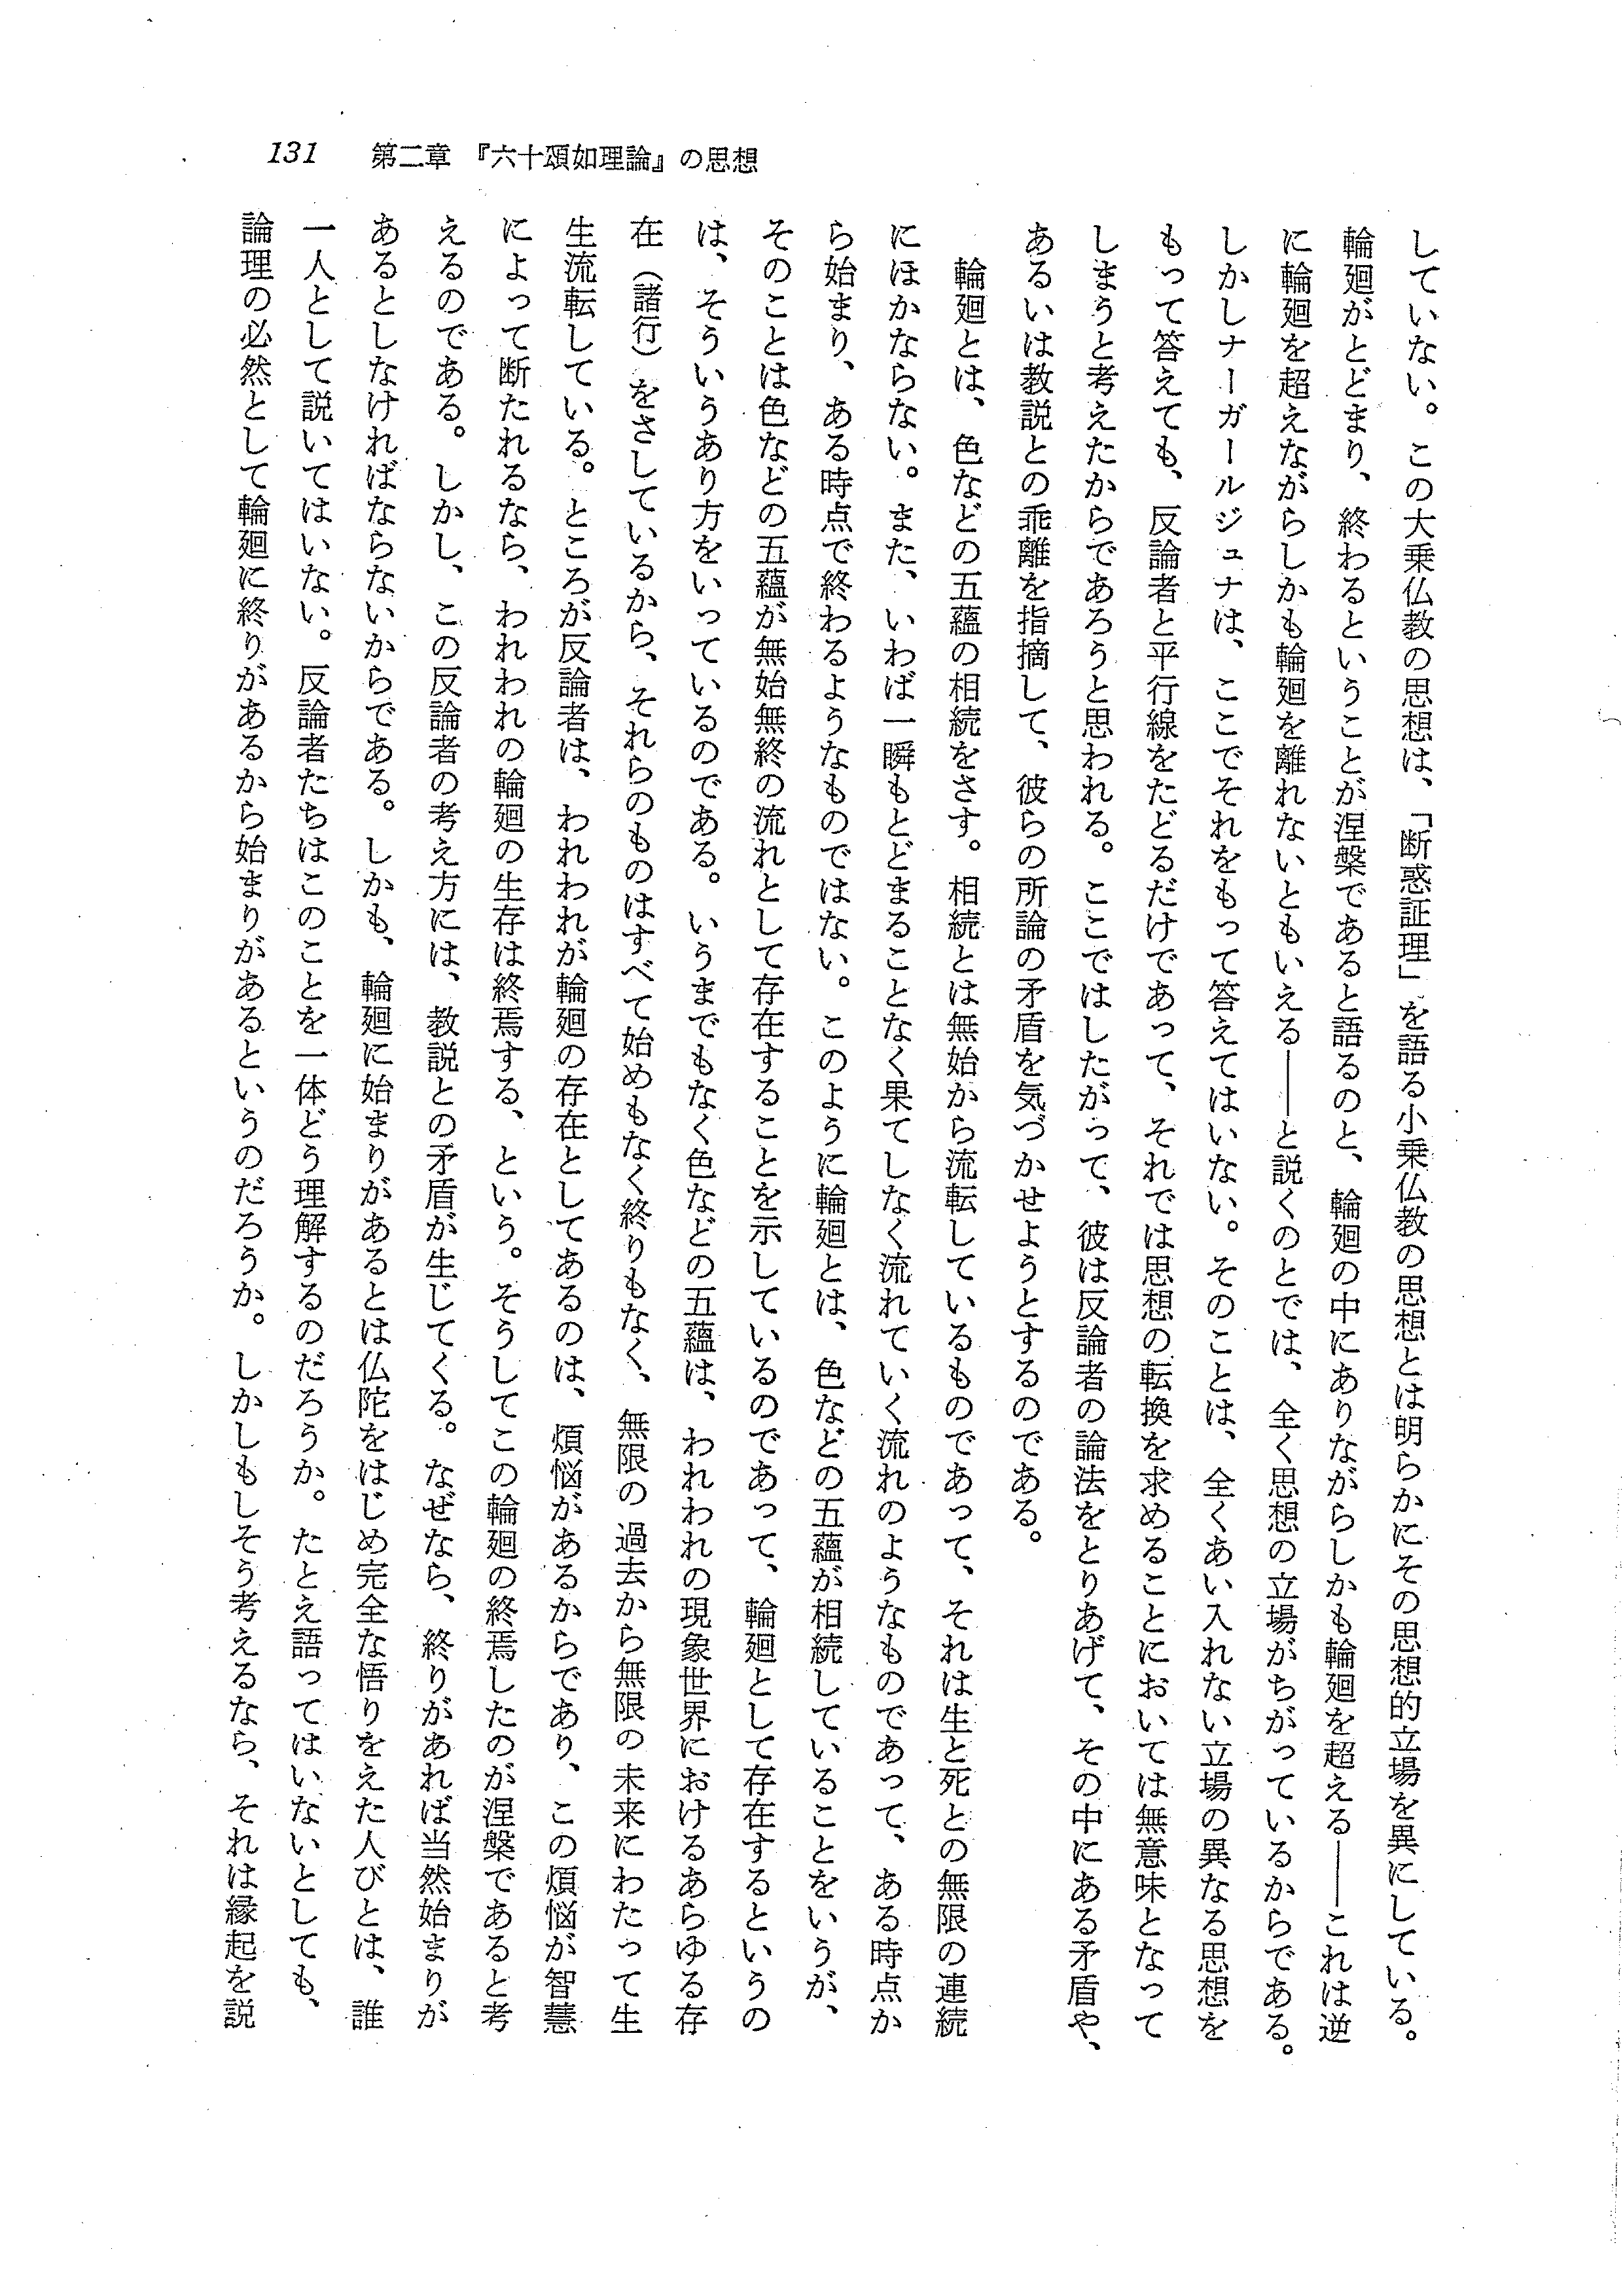 131　第二章　『六十頌如理論』の思想
していない。この大乗仏教の思想は、「断惑証理」を語る小乗仏教の思想とは明らかにその思想的立場を異にしている。
輪廻がとどまり、終わるということが涅槃であると語るのと、輪廻の中にありながらしかも輪廻を超える――これは逆
に輪廻を超えながらしかも輪廻を離れないともいえる――と説くのとでは、全く思想の立場がちがっているからである。
しかしナーガールジュナは、ここでそれをもって答えてはいない。そのことは、全くあい入れない立場の異なる思想を
もって答えても、反論者と平行線をたどるだけであって、それでは思想の転換を求めることにおいては無意味となって
しまうと考えたからであろうと思われる。ここではしたがって、彼は反論者の論法をとりあげて、その中にある矛盾や、
あるいは教説との乖離を指摘して、彼らの所論の矛盾を気づかせようとするのである。
　輪廻とは、色などの五蘊の相続をさす。相続とは無始から流転しているものであって、それは生と死との無限の連続
にほかならない。また、いわば一瞬もとどまることなく果てしなく流れていく流れのようなものであって、ある時点か
ら始まり、ある時点で終わるようなものではない。このように輪廻とは、色などの五蘊が相続していることをいうが、
そのことは色などの五蘊が無始無終の流れとして存在することを示しているのであって、輪廻として存在するというの
は、そういうあり方をいっているのである。いうまでもなく色などの五蘊は、われわれの現象世界におけるあらゆる存
在（諸行）をさしているから、それらのものはすべて始めもなく終りもなく、無限の過去から無限の未来にわたって生
生流転している。ところが反論者は、われわれが輪廻の存在としてあるのは、煩悩があるからであり、この煩悩が智慧
によって断たれるなら、われわれの輪廻の生存は終焉する、という。そうしてこの輪廻の終焉したのが涅槃であると考
えるのである。しかし、この反論者の考え方には、教説との矛盾が生じてくる。なぜなら、終りがあれば当然始まりが
あるとしなければならないからである。しかも、輪廻に始まりがあるとは仏陀をはじめ完全な悟りをえた人びとは、誰
一人として説いてはいない。反論者たちはこのことを一体どう理解するのだろうか。たとえ語ってはいないとしても、
論理の必然として輪廻に終りがあるから始まりがあるというのだろうか。しかしもしそう考えるなら、それは縁起を説